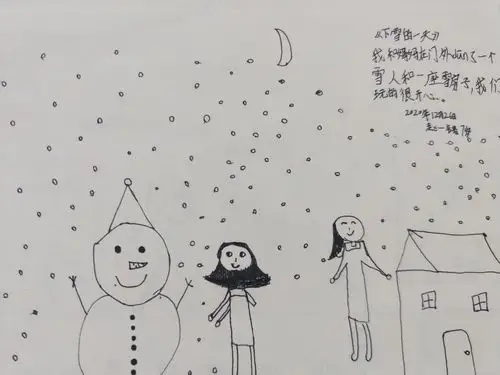 《下雪的一天》
我和妈妈在门外了一个
雪人和一座雪房子,我们
玩的很开心。
2020年12月